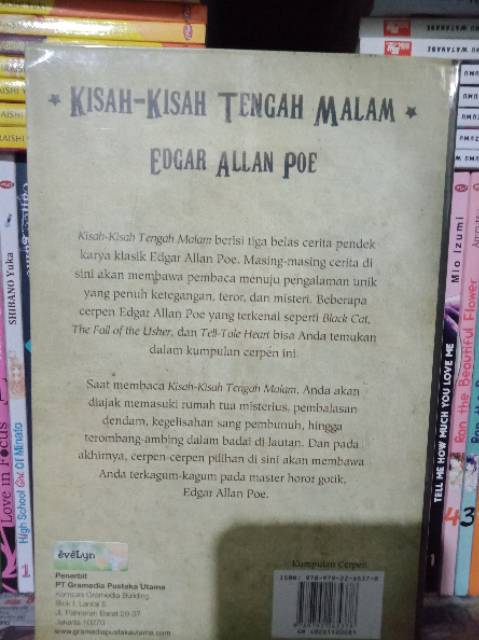 KISAH-KISAH TENGAH MALAM
EDGAR ALLAN POE
Kisah-Kisah Tengah Malam berisi tiga belas cerita pendek
karya klasik Edgar Allan Poe. Masing-masing cerita di
sini akan membawa pembaca menuju pengalaman unik
yang penuh ketegangan, teror, dan misteri. Beberapa
cerpen Edgar Allan Poe yang terkenal seperti Black Cat,
The Fall of the Usher, dan Tell-Tale Heart bisa Anda temukan
dalam kumpulan cerpen ini
Saat membaca Kisah-Kisah Tengah Malam, Anda akan
diajak memasuki rumah tua misterius, pembalasan
dendam, kegelisahan sang pembunuh, hingga
terombang-ambing dalam badai di lautan. Dan pada
akhirnya, cerpen-cerpen pilihan di sini akan membawa
Anda terkagum-kagum pada master horor gotik,
Edgar Allan Poe.
eveLyn
Penerbit
PT Gramedia Pustaka Utama
Kompas Gramedia Building
Blok I, Lantai 5
Jl. Palmerah Barat 29-37
Jakarta 10270
www.gramediapustakautama.com
Kumpulan Cerpen
SHIBANO Yuka
Love in Focus
High School Girl Of Minato
Mio Izumi
TELL ME HOW MUCH YOU LOVE ME
4
Ran the Beautiful Flower
3